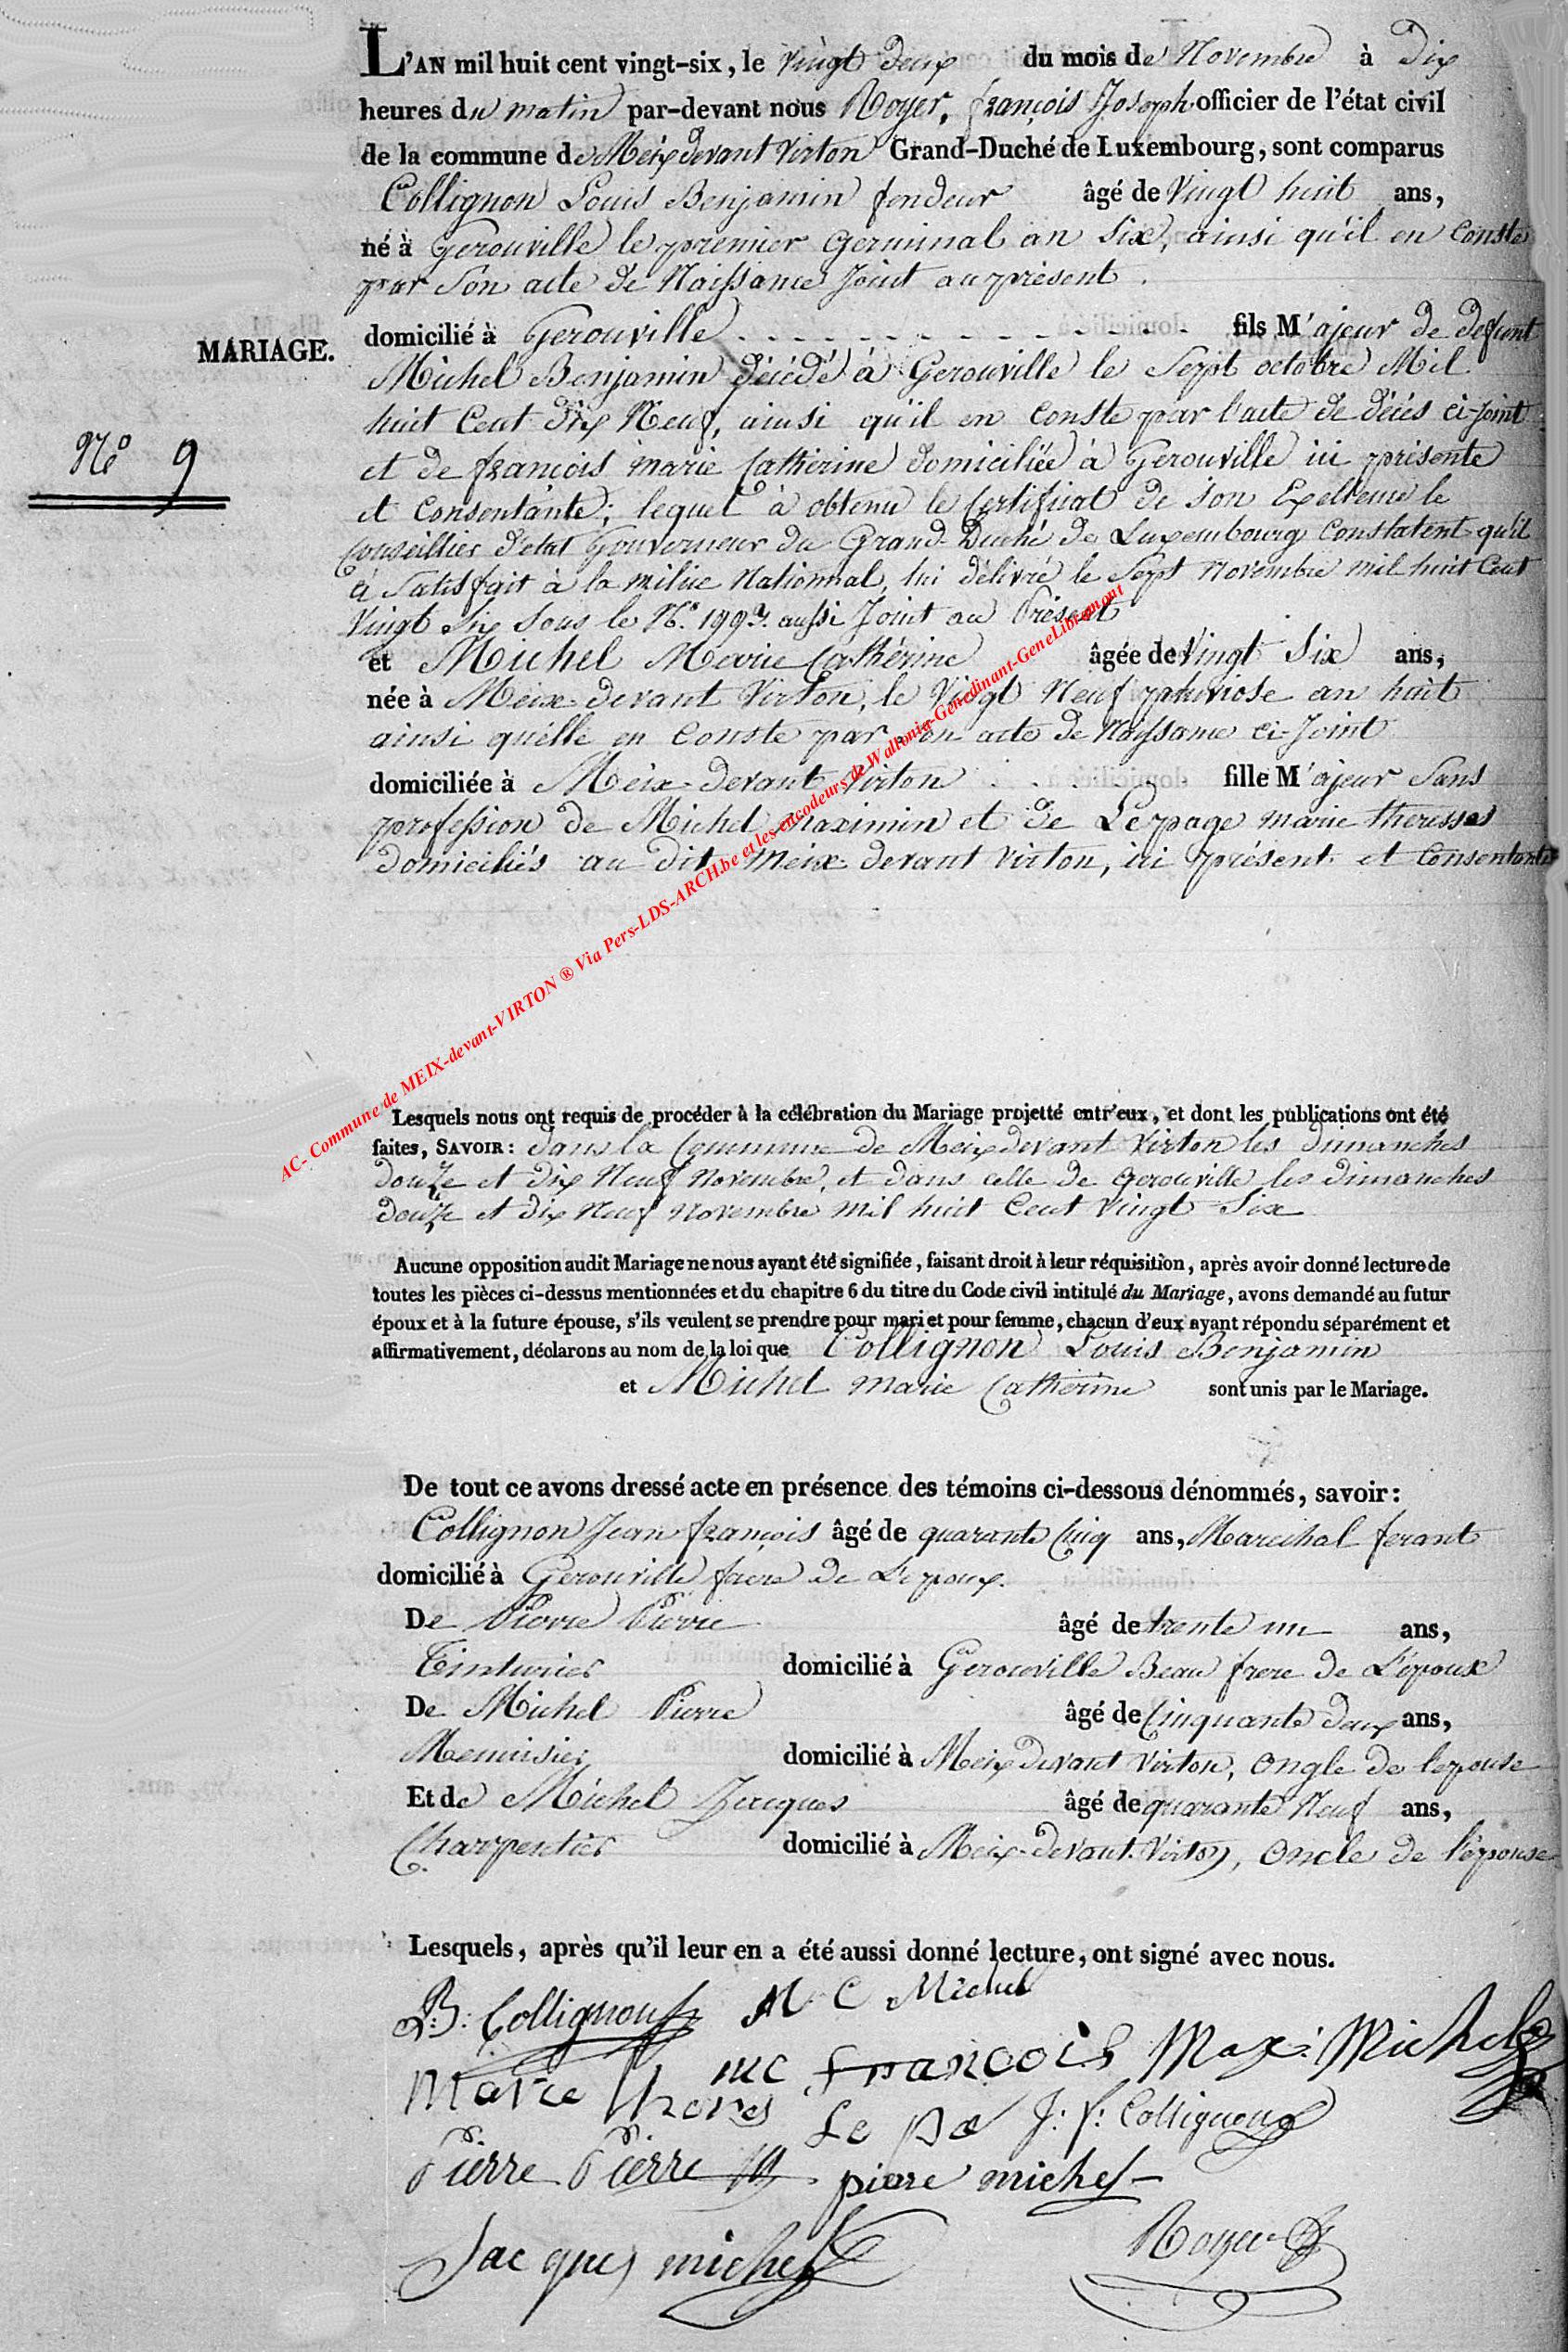 L'AN mil huit cent vingt-six, le vingt deux du mois de Novembre à Dix
heures du matin par-devant nous Royer, françois Joseph officier de l'état civil
de la commune de Meix devant Virton Grand-Duché de Luxembourg, sont comparus
Collignon Louis Benjamin fondeur âgé de Vingt huit ans,
né à Gerouville le premier Germinal an Six, ainsi qu'il en Conste
par Son acte de Naissance Joint au présent.
MARIAGE.
domicilié à Gerouville fils M'ajeur de defunt
Michel Benjamin décédé à Gerouville le Sept octobre Mil
huit Cent dix Neuf, ainsi qu'il en Conste par l'acte de décés ci-joint
N° 9
et de françois marie Catherine domiciliée à Gerouville ici présente
et Consentante; lequel à obtenu le Certificat de son Exellence le
Conseillier d'etat Gouverneur du Grand-Duché de Luxembourg Constatent qu'il
à Satisfait à la milice Nationnal, lui délivré le Sept Novembre mil huit Cent
Vingt Six Sous le N°. aussi Joint au Présent
et Michel Marie Cathérine âgée de Vingt Six ans,
née à Meix-devant Virton, le Vingt Neuf pluviose an huit
ainsi quélle en Conste par son acte de Naissance ci-Joint
domiciliée à Meix-devant Virton fille M'ajeur Sans
profession de Michel Maximin et de Lepage marie theresses
domiciliés au dit Meix-devant Virton, ici présent et Consentante
AC- Commune de MEIX-devant-VIRTON ® Via Pers-LDS-ARCH.be et les encodeurs de Wallonia-Genedinant-GeneLibramont
Lesquels nous ont requis de procéder à la célébration du Mariage projetté entr'eux, et dont les publications ont été
faites, SAVOIR: dans la Commune de Meix devant Virton les dimanches
douze et dix Neuf Novembre, et dans celle de Gerouville les dimanches
douze et dix Neuf Novembre mil huit Cent Vingt Six
Aucune opposition audit Mariage ne nous ayant été signifiée, faisant droit à leur réquisition, après avoir donné lecture de
toutes les pièces ci-dessus mentionnées et du chapitre 6 du titre du Code civil intitulé du Mariage, avons demandé au futur
époux et à la future épouse, s'ils veulent se prendre pour mari et pour femme, chacun d'eux ayant répondu séparément et
affirmativement, déclarons au nom de la loi que Collignon Louis Benjamin
et Michel marie Catherine sont unis par le Mariage.
De tout ce avons dressé acte en présence des témoins ci-dessous dénommés, savoir:
Collignon Jean françois âgé de quarante Cinq ans, Marechal ferant
domicilié à Gerouville frere de L'epoux.
De Pierre Pierre âgé de trente un ans,
Teinturier domicilié à Gerouville Beau frere de L'époux
De Michel Pierre âgé de Cinquante deux ans,
Menuisier domicilié à Meix devant Virton, Ongle de lepouse
Et de Michel Jacques âgé de quarante Neuf ans,
Charpentier domicilié à Meix-devant-Virton, Oncle de l'épouse
Lesquels, après qu'il leur en a été aussi donné lecture, ont signé avec nous.
L:B: Collignon M C Michel
mc francois Max: Michel
Marie thores Le pa J: f: Collignon
Pierre Pierre pierre michel
Jacques michel Royer